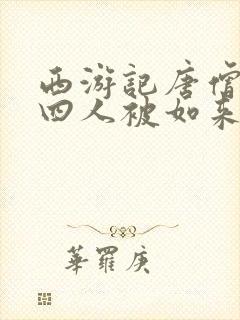 西游記唐僧
四人被如来
華羅庚